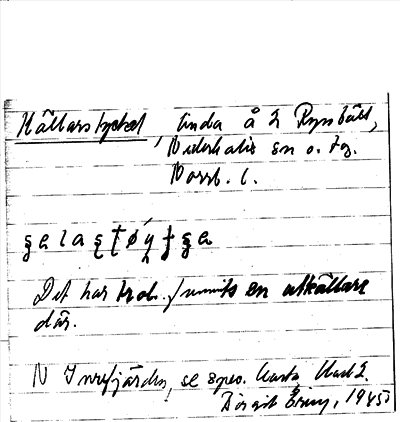 Källarstycket, ända å 2 Rynbäck,
Nederkalix sn o. tg.
Norrb. l.
Det har trol. funnits en utkällare
där.
N Inrefjärden, se spec. karta, blad 2.
Birgit Eriny, 1945